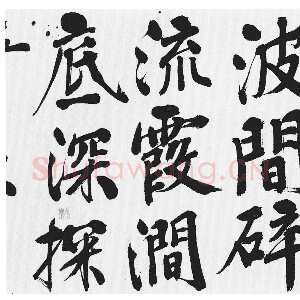 波間碎
流霞澗
底深探